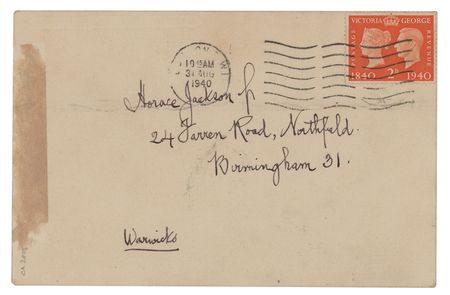 VICTORIA GEORGE
POSTAGE
REVENUE
1840 2D 1940
10 15 AM
31 AUG
1940
Horace Jackson
24 Farren Road, Northfield.
Birmingham 31.
Warwicks